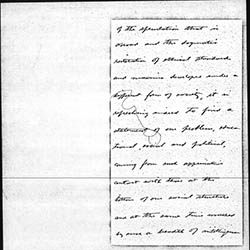 of the speculation that is
and the dogmatic
reiteration of ethical standards
and maxims developed under a
different form of society, it is
refreshing indeed to find a
statement of our problems, educa-
tional, social and political,
coming from such
contact with those at the
bottom of our social structure
and at the same time
by such a breadth of intelligence